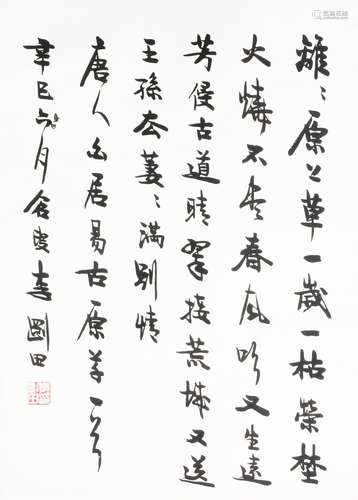 離〻原上草一歲一枯榮野
火燒不盡春風吹又生遠
芳侵古道晴翠接荒城又送
王孫去萋〻滿別情
唐人白居易古原草一首
辛巳月李田